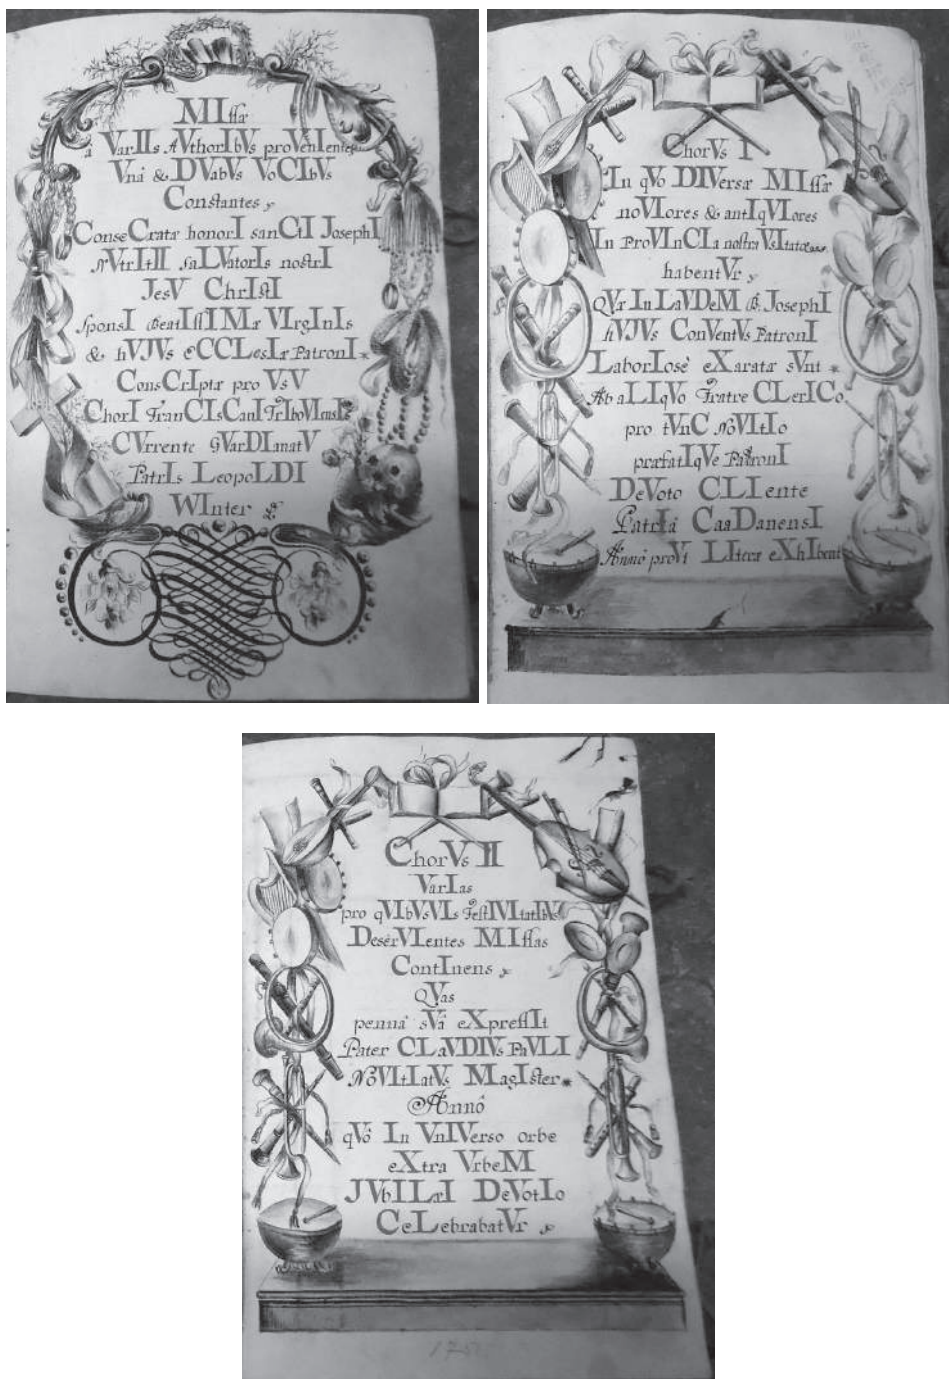 MIssæ
â VarIIs AVthorIbVs proVenIentes
Vnâ & DVabVs VoCIbVs
Constantes
ConseCratæ honorI sanCtI JosephI
NVtrItII saLVatorIs nostrI
JesV ChrIstI
SponsI BeatIssIMæ VIrgInIs
& hVJVs eCCLesIæ PatronI
ConsCrIptæ pro VsV
ChorI FranCIsCanI
CVrrente GVarDIanatV
PatrIs LeopoLDI
WInter
ChorVs I
In qVo DIVersæ MIssæ
noVIores & antIqVIores
In ProVInCIa nostra
habentVr
QVæ In LaVDeM B. JosephI
hVJVs ConVentVs PatronI
LaborIosè eXaratæ sVnt
Ab aLIqVo Fratre CLerICo
pro tVnC NoVItIo
præfatIqVe PatronI
DeVoto CLIente
PatrIâ CaaDanensI
Annô proVt LIteræ eXhIbent
ChorVs II
VarIas
pro qVIbVsVIs FestIVItatIbVs
DesèrVIentes MIssas
ContInens
QVas
pennâ sVâ eXpressIt
Pater CLaVDIVs PaVLI
NôVItIatVs MagIster
Annô
qVô In VnIVerso orbe
eXtra VrbeM
JVbILæI DeVotIo
CeLebrabatVr